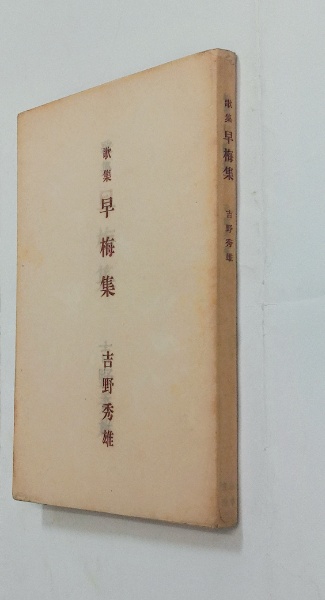 歌集 早梅集 吉野秀雄
歌集 早梅集 吉野秀雄